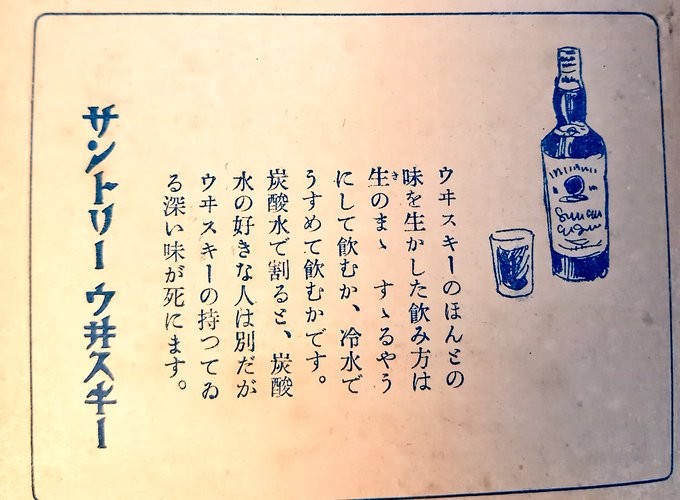 ウヰスキーのほんとの
味を生かした飲み方は
生のまゝ すゝるやう
にして飲むか、冷水で
うすめて飲むかです。
炭酸水で割ると、炭酸
水の好きな人は別だが
ウヰスキーの持つてゐ
る深い味が死にます。
サントリー ウ井スキー